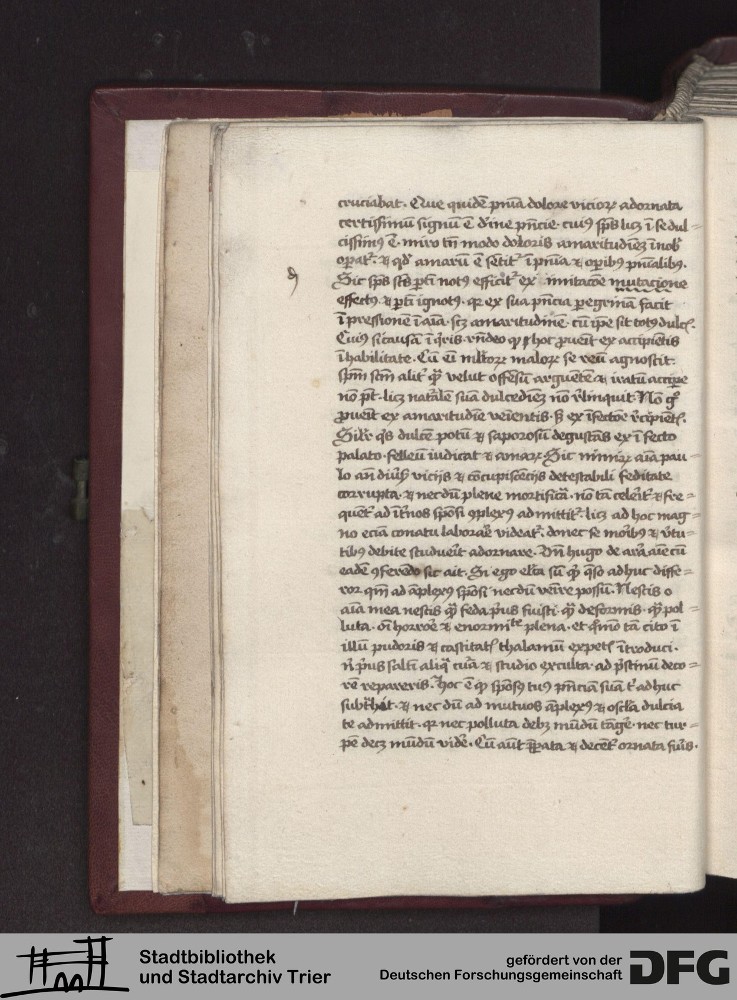 cruciabat. Que quidē pn̄ia dolore vicioꝝ adornata
certissimū signū ē dīne pn̄cie. cuiꝰ sp̄s licꝫ ī se dul-
cissimꝰ ē. miro tn̄ modo doloris amaritudiēꝫ ī nob̄
oꝑat᷑. ⁊ qd̓ amarū ē sētit᷑ ī pn̄ia ⁊ oꝑibꝰ pn̄ialibꝰ.
Sic sp̄s sc̄s ꝑti notꝰ efficit᷑ ex imitacōe mutacione
effectꝰ. ⁊ ꝑti ignotꝰ. qꝛ ex sua pn̄cia ꝑegrinā facit
īpressionē ī aīa. scꝫ amaritudinē. cū ip̄e sit totꝰ dulc̄.
Cuiꝰ si causā ī q̄ris. rn̄deo ꝙ hoc ꝓueīt ex accipiētis
īhabilitate. Cū eī ml̄toꝝ maloꝝ se reū agnoscit.
sp̄m scm̄ alit᷑ ꝙ̄ velut offēsū arguētē ⁊ iratū accipe
nō pt̄. licꝫ nat᷑alē suā dulcediēꝫ nō r̓linquit. Nō g̊
ꝓueīt ex amaritudīe veīentis. sꝫ ex īfectōe r̓cipiēt̄.
Silr̄ q̇s dulcē potū ⁊ saporosū degustās ex īfecto
palato. felleū iudicat ⁊ amaꝝ. Sic nimiꝝ aīa pau-
lo an̄ diūsꝭ vicijs ⁊ cōcupiscēcijs detestabili feditate
corrupta. ⁊ necdū plene mortificā. nō tā celeit᷑ ⁊ fre-
quēt᷑ ad īt᷑nos spōsi ꝯplexꝰ admittit᷑. licꝫ ad hoc mag-
no eciā conatu laborare videat᷑. donec se moibꝰ ⁊ v̓tu-
tibꝰ debite studueīt adornare. Vn̄ hugo de arā aīe cū
eadē ꝯferēdo sic ait. Si ego elc̄a sū ꝙ̄ q̄so adhuc diffe-
ror qm̄ ad āplexꝰ spōsi necdū veīre possū. Nescis o
aīa mea nescis ꝙ̄ feda pͥus fuisti. ꝙ̄ deformis. ꝙ̄ pol-
luta. oī horroē ⁊ enormitͭe plena. et q̊mō tā cito ī
illū pudoris ⁊ castitat̄ thalamū expet̄ ītroduci.
n̄ pͥus saltī aliq̄ cuā ⁊ studio exculta. ad pͥstinū deco-
rē reparaveris. Hoc ē ꝙ spōsꝰ tuꝰ pn̄ciā suā t̓ adhuc
subt᷑hit. ⁊ nec dū ad mutuos āplexꝰ ⁊ oscl̄a dulcia
te admittit. qꝛ nec polluta debꝫ mūdū tāgē. nec tur-
pē decꝫ mūdū vidē. Cū aūt ꝓ̄pata ⁊ decēt᷑ ornata fūis.
Stadtbibliothek
und Stadtarchiv Trier
gefördert von der
Deutschen Forschungsgemeinschaft
DFG